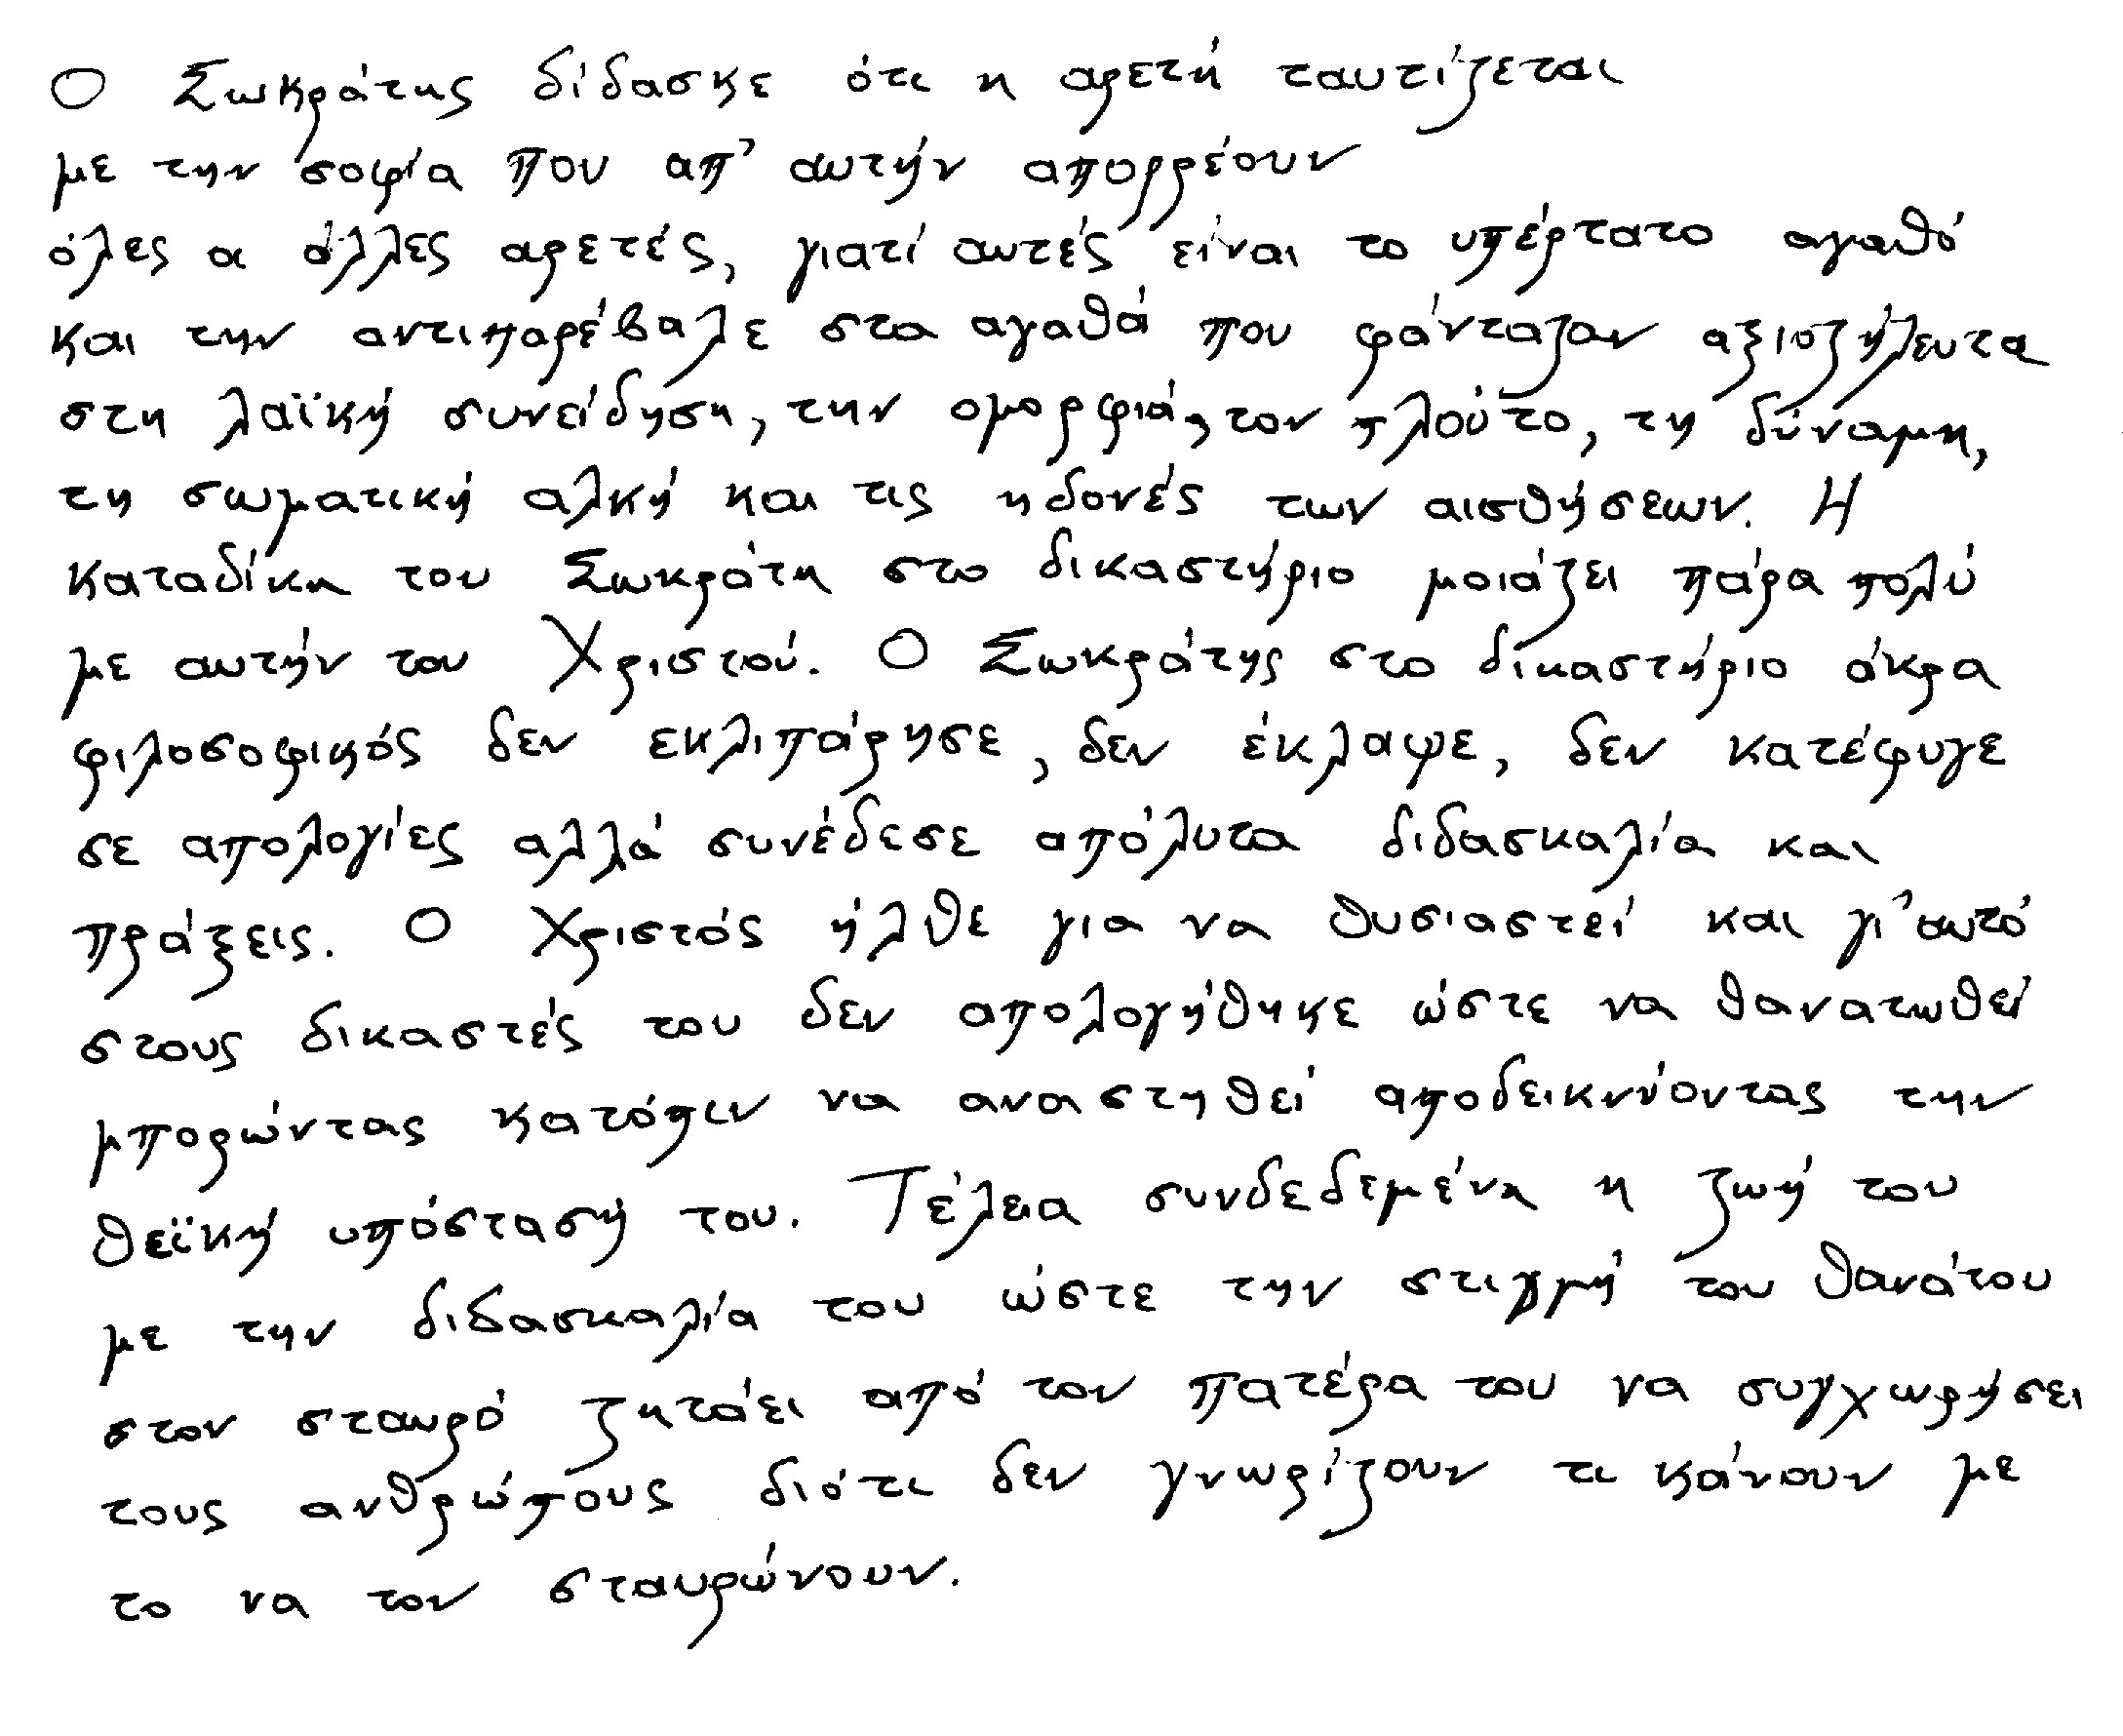 Ο Σωκράτης δίδασκε ότι η αρετή ταυτίζεται
με την σοφία που απ' αυτήν απορρέουν
όλες οι άλλες αρετές, γιατί αυτές είναι το υπέρτατο αγαθό
και την αντιπαρέβαλε στα αγαθά που φάνταζαν αξιοζήλευτα
στη λαϊκή συνείδηση, την ομορφιά, τον πλούτο, τη δύναμη,
τη σωματική αλκή και τις ηδονές των αισθήσεων. Η
καταδίκη του Σωκράτη στο δικαστήριο μοιάζει πάρα πολύ
με αυτήν του Χριστού. Ο Σωκράτης στο δικαστήριο άκρα
φιλοσοφικός δεν εκλιπάρησε, δεν έκλαψε, δεν κατέφυγε
σε απολογίες αλλά συνέδεσε απόλυτα διδασκαλία και
πράξεις. Ο Χριστός ήλθε για να θυσιαστεί και γι' αυτό
στους δικαστές του δεν απολογήθηκε ώστε να θανατωθεί
μπορώντας κατόπιν να αναστηθεί αποδεικνύοντας την
θεϊκή υπόστασή του. Τέλεια συνδεδεμένη η ζωή του
με την διδασκαλία του ώστε την στιγμή του θανάτου
στον σταυρό ζητάει από τον πατέρα του να συγχωρήσει
τους ανθρώπους διότι δεν γνωρίζουν τι κάνουν με
το να τον σταυρώνουν.